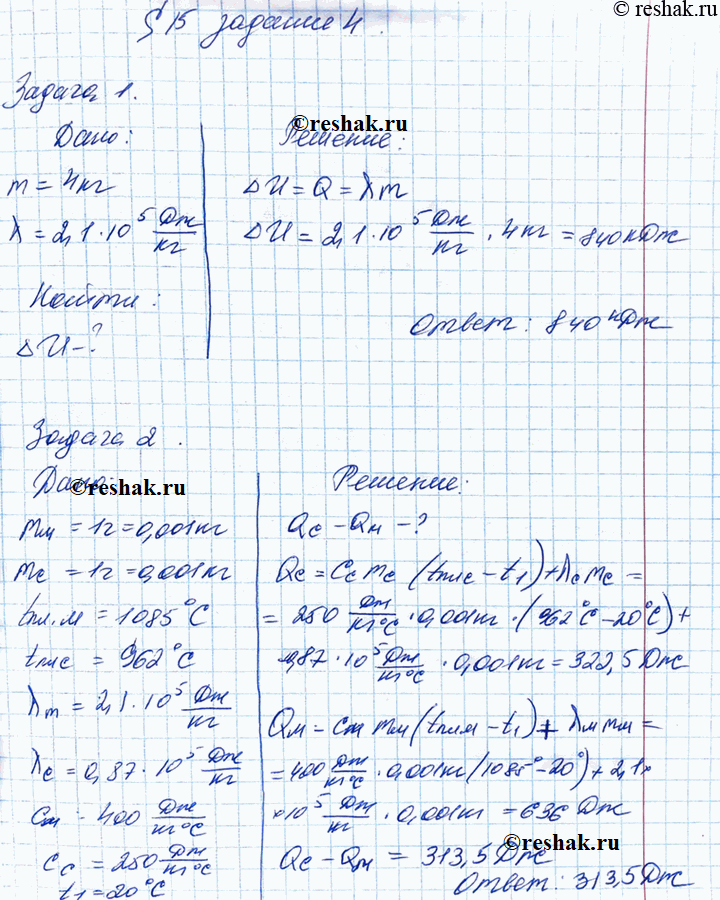 © reshak.ru
§ 15 задание 4.
Задача 1.
Дано:
m = 4кг
λ = 2,1·10^5 Дж/кг
Найти:
ΔU-?
©reshak.ru
Решение:
ΔU = Q = λm
ΔU = 2,1·10^5 Дж/кг · 4кг = 840кДж
Ответ: 840 кДж
Задача 2.
Дано:
©reshak.ru
mм = 1г = 0,001кг
mс = 1г = 0,001кг
tпл.м = 1085°C
tплс = 962°C
λm = 2,1·10^5 Дж/кг
λс = 0,87·10^5 Дж/кг
Cм = 400 Дж/кг°C
Cс = 250 Дж/кг°C
t1 = 20°C
Решение:
Qс - Qм - ?
Qс = Cс mс (tплс - t1) + λс mс =
= 250 Дж/кг°C · 0,001кг · (962°C - 20°C) +
0,87·10^5 Дж/кг°C · 0,001кг = 322,5 Дж
Qм = Cм mм (tплм - t1) + λм mм =
= 400 Дж/кг°C · 0,001кг (1085° - 20°) + 2,1×
×10^5 Дж/кг · 0,001кг = 636 Дж
©reshak.ru
Qс - Qм = 313,5 Дж
Ответ: 313,5 Дж